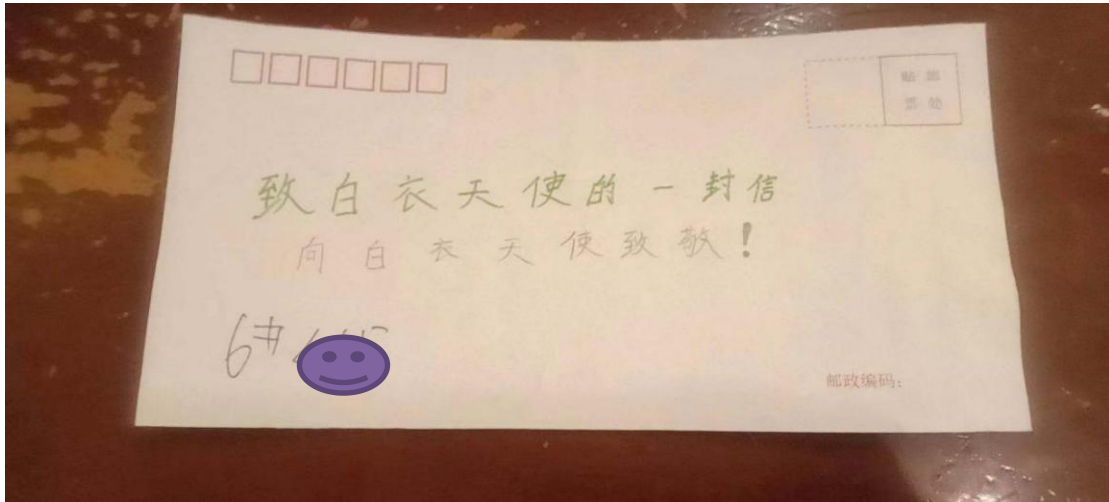 贴邮
票处
致白衣天使的一封信
向白衣天使致敬!
6#
邮政编码: